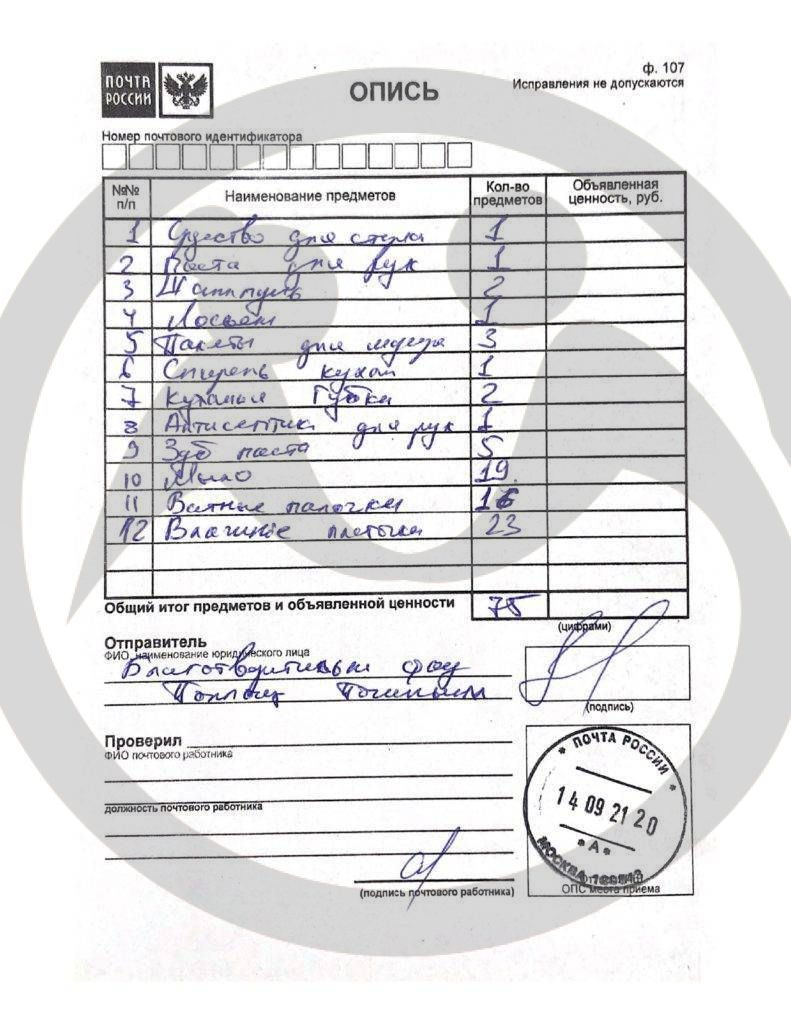 ПОЧТА РОССИИ
ОПИСЬ
ф. 107
Исправления не допускаются
Номер почтового идентификатора
№№ п/п Наименование предметов Кол-во предметов Объявленная ценность, руб.
1 для 1
2 Паста для рук 1
3 Шампунь 2
4 Лосьон 1
5 Пакеты для 3
6 1
7 Губки 2
8 Антисептик для рук 1
9 Зуб паста 5
10 Мыло 19
11 Ватные палочки 16
12 23
Общий итог предметов и объявленной ценности 75
(цифрами)
Отправитель
ФИО, наименование юридического лица
(подпись)
Проверил
ФИО почтового работника
должность почтового работника
(подпись почтового работника)
ПОЧТА РОССИИ
14 09 21 20
*А*
МОСКВА
ОПС места приема